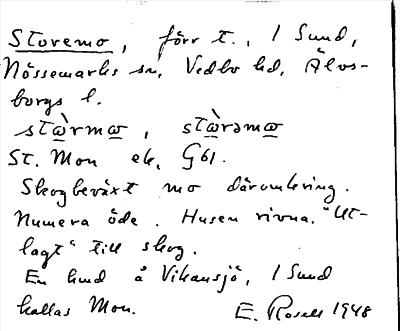 Storemo, förr t., I Sund,
Nössemarks sn, Vedbo hd, Älvs-
borgs l.
stæ̀rmæ, stæ̀rəmæ
St. Mon ek, G61.
Skogbeväxt mo däromkring.
Numera öde. Husen rivna. "Ut-
lagt" till skog.
En hmd å Vikansjö, I Sund
kallas Mon. E. Rosell 1948